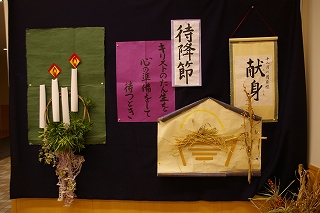 待降節
キリストのたん生を
心の準備をして
待つとき
献身